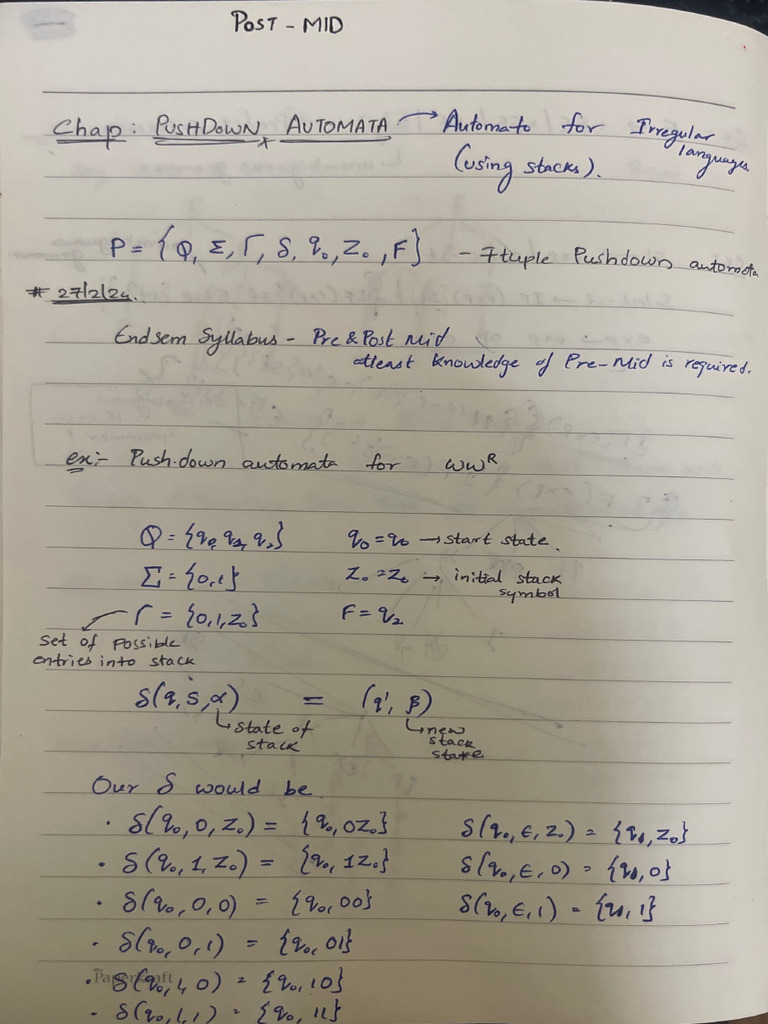 POST - MID
Chap: PUSHDOWN AUTOMATA → Automato for Irregular languages
(using stacks).
P = {Q, Σ, Γ, δ, q₀, Z₀, F} - 7tuple Pushdown automata
# 27/2/24.
Endsem Syllabus - Pre & Post Mid
atleast knowledge of Pre-Mid is required.
ex:- Push-down automata for wwᴿ
Q = {q₀, q₁, q₂} q₀ = q₀ → start state.
Σ = {0,1} Z₀ = Z₀ → initial stack symbol
Γ = {0,1,Z₀} F = q₂
set of possible
entries into stack
δ(q, s, α) = (q', β)
state of stack
new stack state
Our δ would be
· δ(q₀, 0, Z₀) = {q₀, 0Z₀} δ(q₀, ϵ, Z₀) = {q₁, Z₀}
· δ(q₀, 1, Z₀) = {q₀, 1Z₀} δ(q₀, ϵ, 0) = {q₁, 0}
· δ(q₀, 0, 0) = {q₀, 00} δ(q₀, ϵ, 1) = {q₁, 1}
· δ(q₀, 0, 1) = {q₀, 01}
· δ(q₀, 1, 0) = {q₀, 10}
· δ(q₀, 1, 1) = {q₀, 11}